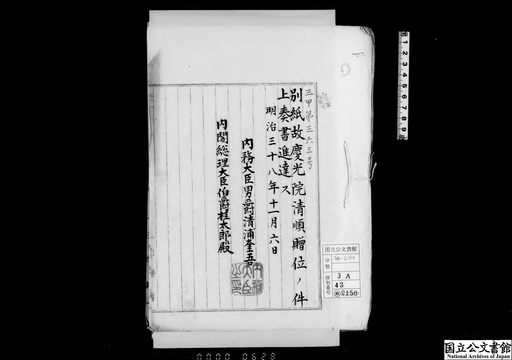 三甲第三六三号
別紙故慶光院清順贈位ノ件
上奏書進達ス
明治三十八年十一月六日
内務大臣男爵清浦奎吾
内閣総理大臣伯爵桂太郎殿
国立公文書館
分類
排架番号
3 A
43
2150
0000 0628
国立公文書館
National Archives of Japan